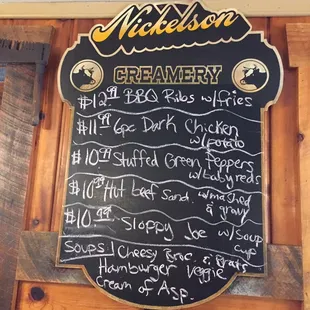 Nickelson
CREAMERY
$12.99 BBQ Ribs w/fries
$11.99 6pc Dark Chicken
w/potato
$10.99 Stuffed Green Peppers
w/baby reds
$10.99 Hot beef Sand. w/mashed
& gravy
$10.99 Sloppy Joe w/soup
cup
Soups | Cheesy Broc. & Brats
Hamburger Veggie
Cream of Asp.